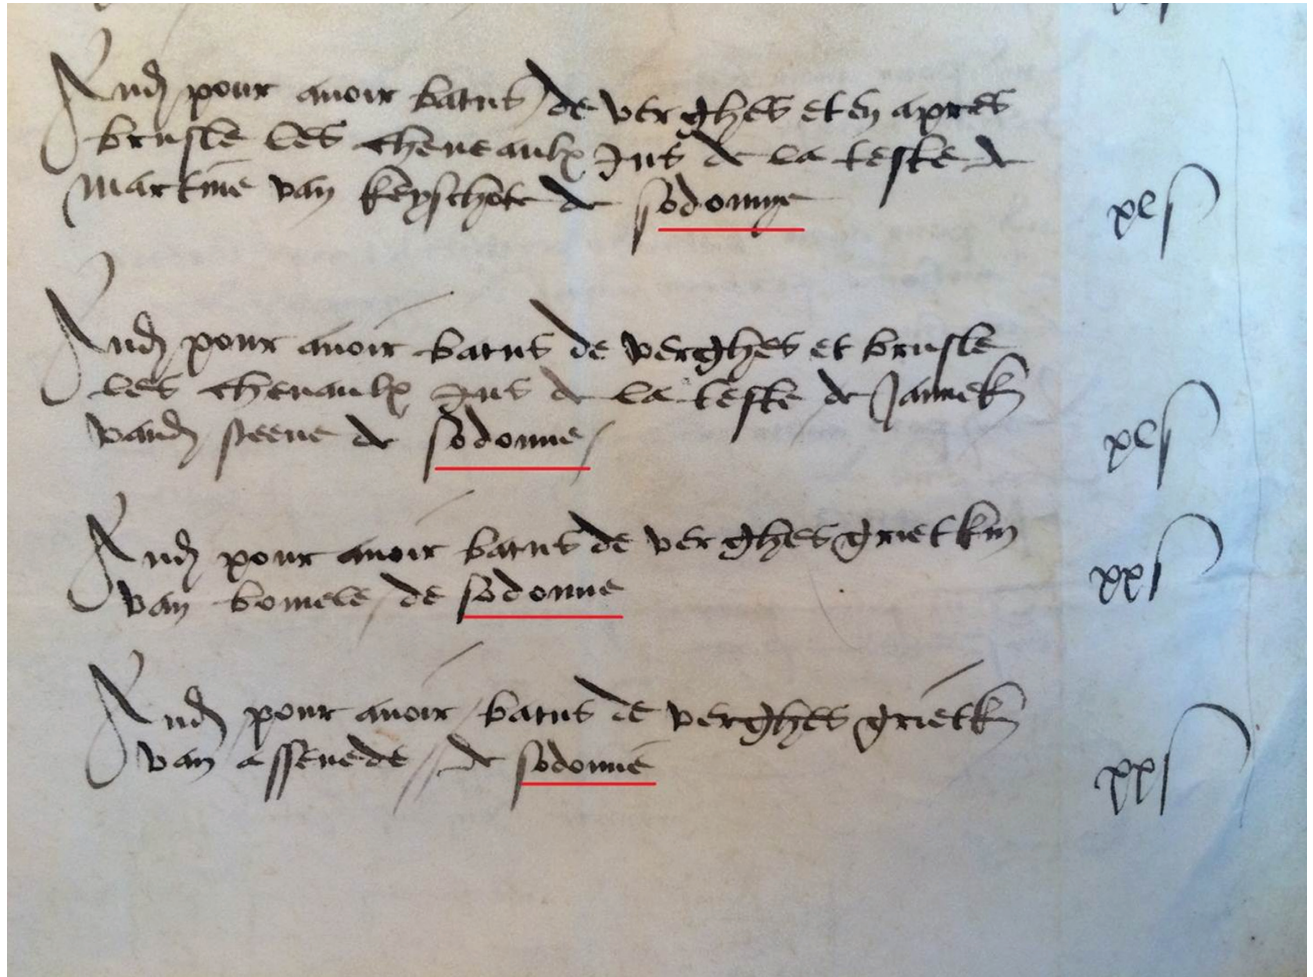 Audj pour avoir batus de verghes et en apres
brusle les cheveaulx Jus de la teste de
Martine van keyschote de sodomye xl s
Audj pour avoir batus de verghes et brusle
les chevaulx Jus de la teste de Jannek
vandj steene de sodomie xl s
Audj pour avoir batus de verghes grietkin
van bomele de sodomie xx s
Audj pour avoir batus de verghes grietk
van assenede de sodomie xx s